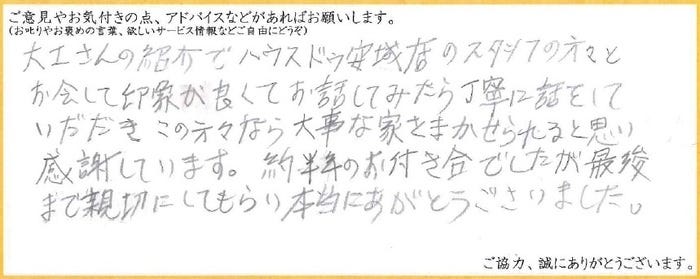 ご意見やお気付きの点、アドバイスなどがあればお願いします。
(お叱りやお褒めの言葉、欲しいサービス情報などご自由にどうぞ)
大工さんの紹介でハウスドゥ安城店のスタッフの方々と
お会して印象が良くてお話してみたら丁寧に話をして
いだだきこの方々なら大事な家をまかせられると思い
感謝しています。約半年のお付き合でしたが最後
まで親切にしてもらい本当にあがとうございました。
ご協力、誠にありがとうございます。